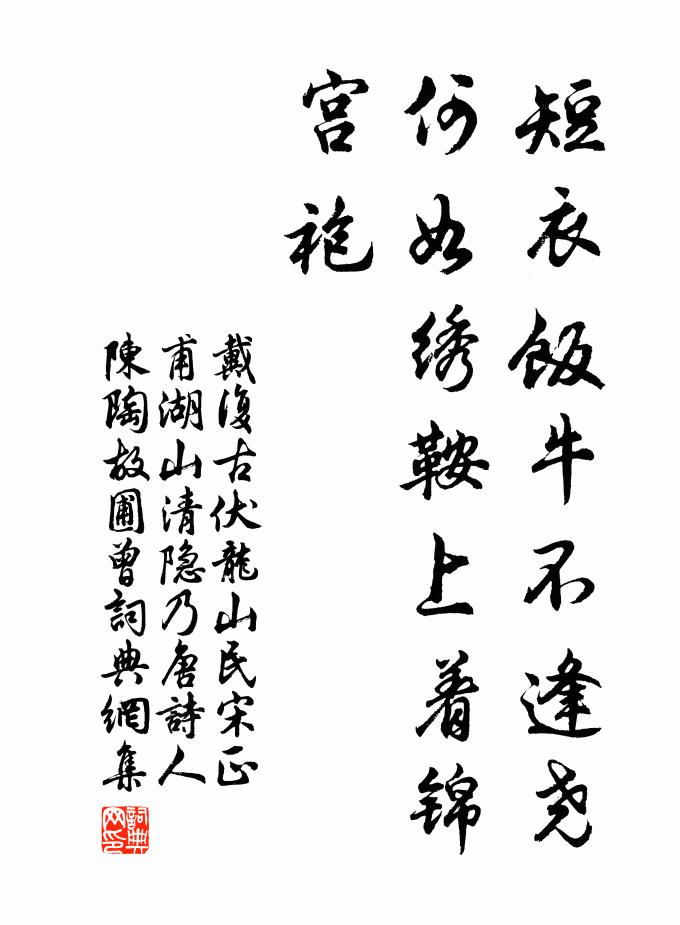 短衣饭牛不逢尧
何如绣鞍上着锦
宫袍
戴復古伏龍山民宋正
甫湖山清隐乃唐詩人
陳陶故圃曾詞典網集
詞典網印